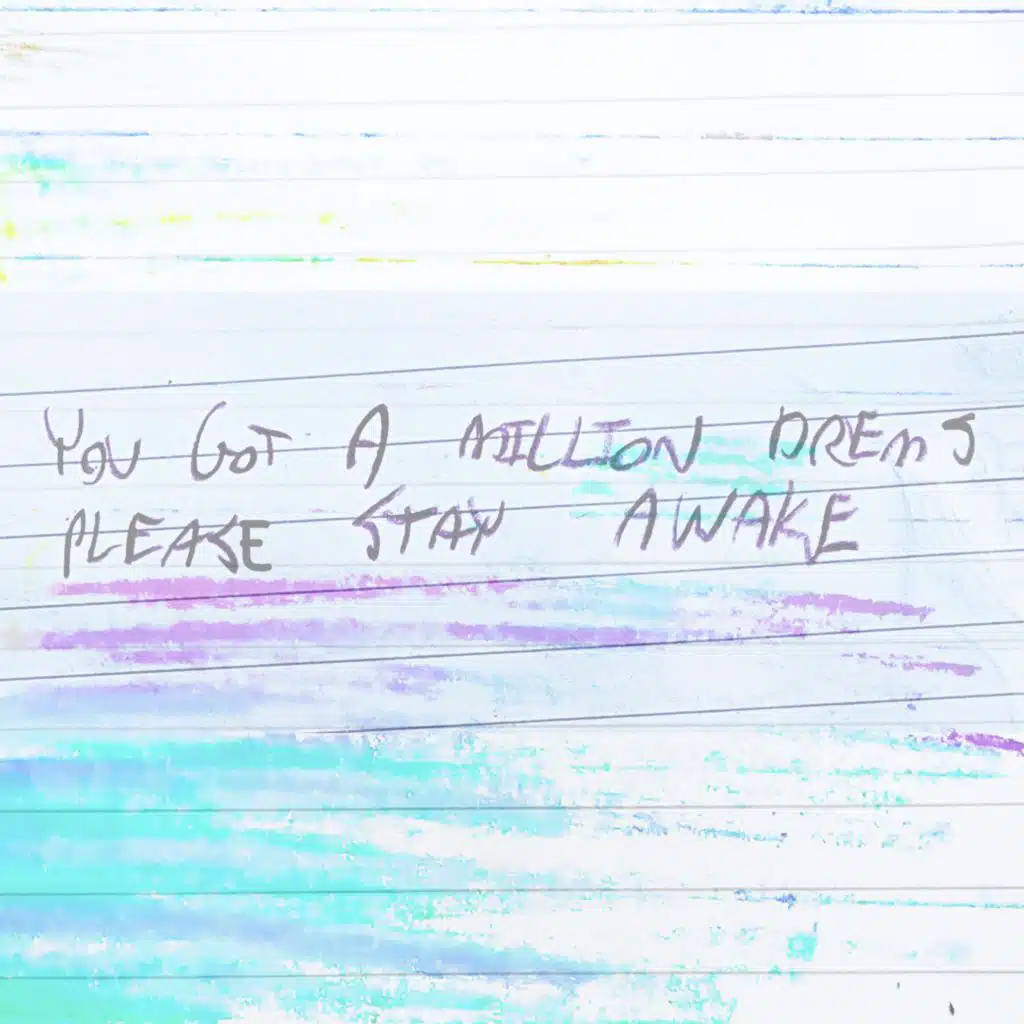 YOU GOT A MILLION DREMS
PLEASE STAY AWAKE